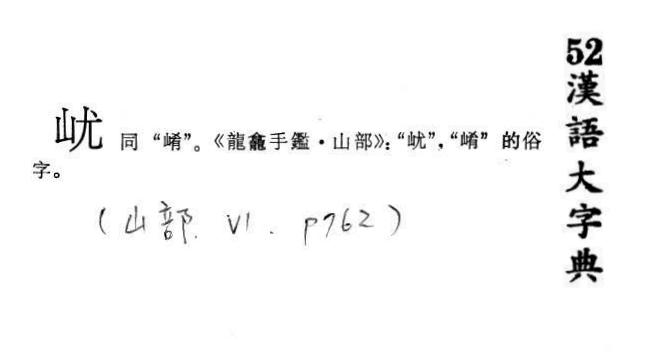 52漢語大字典
㞂 同“崤”。《龍龕手鑑·山部》：“㞂”，“崤”的俗
字。
（山部. V1. P762）